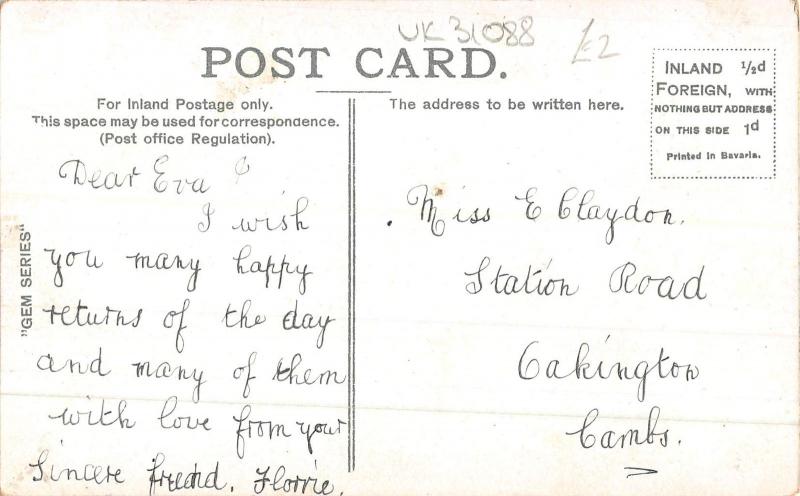 UK 31088
£2
POST CARD.
For Inland Postage only.
This space may be used for correspondence.
(Post office Regulation).
The address to be written here.
INLAND ½d
FOREIGN, WITH
NOTHING BUT ADDRESS
ON THIS SIDE 1d
Printed in Bavaria.
"GEM SERIES"
Dear Eva
I wish
you many happy
returns of the day
and many of them
with love from your
Sincere friend. Florrie.
Miss E Claydon.
Station Road
Oakington
Cambs.